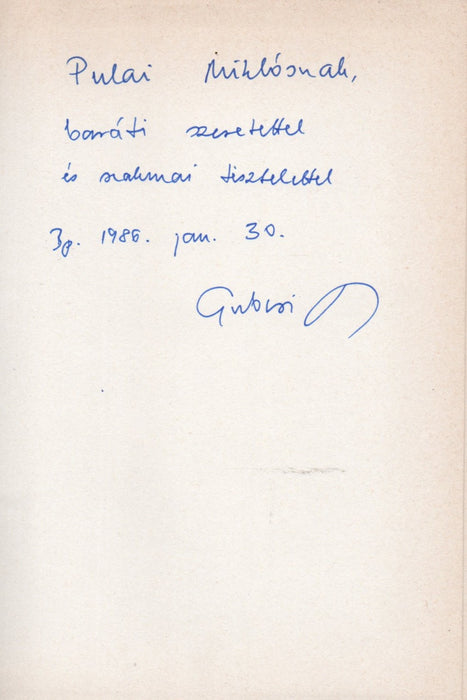 Pulai Miklósnak,
baráti szeretettel
és szakmai tisztelettel
Bp. 1986. jan. 30.
Gubcsi